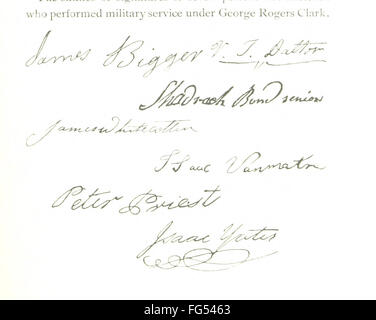 who performed military service under George Rogers Clark.
James Bigger V. T. Dalton
Shadrach Bond senior
James Whitecotten
Isaac Vanmatre
Peter Priest
Isaac Yeates
alamy
FG5463